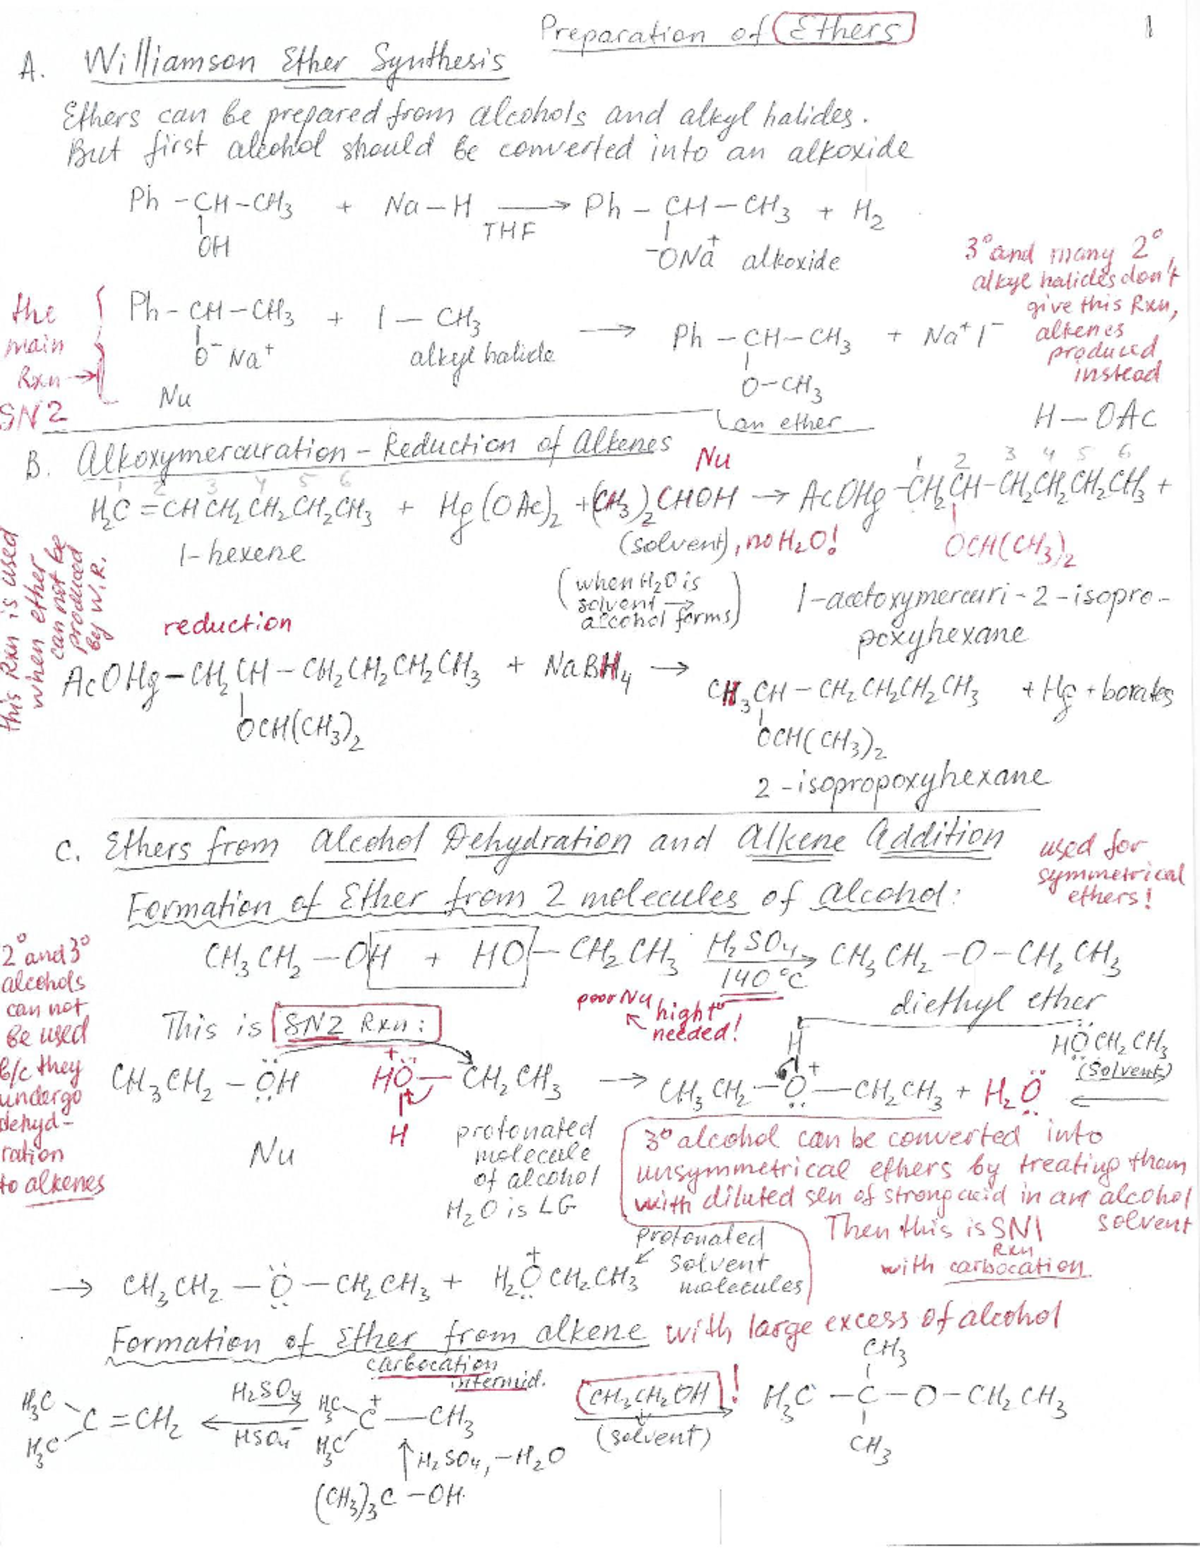 Preparation of Ethers
1
A. Williamson Ether Synthesis
Ethers can be prepared from alcohols and alkyl halides.
But first alcohol should be converted into an alkoxide
Ph - CH - CH₃ + Na - H → Ph - CH - CH₃ + H₂
OH
THF
⁻ONa⁺ alkoxide
3° and many 2°
alkyl halides don't
give this Rxn,
alkenes
produced
instead
the
main
Rxn →
SN2
Ph - CH - CH₃ + I - CH₃ → Ph - CH - CH₃ + Na⁺ I⁻
O⁻ Na⁺
alkyl halide
O-CH₃
Nu
an ether
H - OAc
B. Alkoxymercuration - Reduction of Alkenes
Nu
1 2 3 4 5 6
1 2 3 4 5 6
H₂C = CHCH₂CH₂CH₂CH₃ + Hg(OAc)₂ + (CH₃)₂CHOH → AcOHg - CH₂CH - CH₂CH₂CH₂CH₃ +
1-hexene
(solvent), no H₂O!
OCH(CH₃)₂
(when H₂O is
solvent →
alcohol forms)
1-acetoxymercuri-2-isopro-
poxyhexane
this Rxn is used
when ether
can not be
produced
by W.R.
reduction
AcOHg - CH₂CH - CH₂CH₂CH₂CH₃ + NaBH₄ →
OCH(CH₃)₂
CH₃CH - CH₂CH₂CH₂CH₃ + Hg + borates
OCH(CH₃)₂
2-isopropoxyhexane
C. Ethers from Alcohol Dehydration and Alkene Addition
used for
symmetrical
ethers!
Formation of Ether from 2 molecules of alcohol:
CH₃CH₂ - OH + HO - CH₂CH₃ → CH₃CH₂ - O - CH₂CH₃
H₂SO₄
140°C
diethyl ether
2° and 3°
alcohols
can not
be used
b/c they
undergo
dehyd-
ration
to alkenes
poor Nu
high t°
needed!
This is SN2 Rxn:
H
HÖCH₂CH₃
(Solvent)
CH₃CH₂ - ÖH HO⁺ - CH₂CH₃ → CH₃CH₂ - O⁺ - CH₂CH₃ + H₂O
H
Nu
protonated
molecule
of alcohol
H₂O is LG
3° alcohol can be converted into
unsymmetrical ethers by treating them
with diluted sln of strong acid in an alcohol
solvent
Then this is SN1
Rxn
with carbocation
protonated
solvent
molecules
→ CH₃CH₂ - O - CH₂CH₃ + H₂O⁺CH₂CH₃
Formation of Ether from alkene with large excess of alcohol
carbocation
intermid.
CH₃
H₃C
H₃C
C = CH₂
H₂SO₄
HSO₄⁻
H₃C
H₃C
C⁺ - CH₃
CH₃CH₂OH !
(solvent)
H₃C - C - O - CH₂CH₃
CH₃
↑ H₂SO₄, -H₂O
(CH₃)₃C - OH